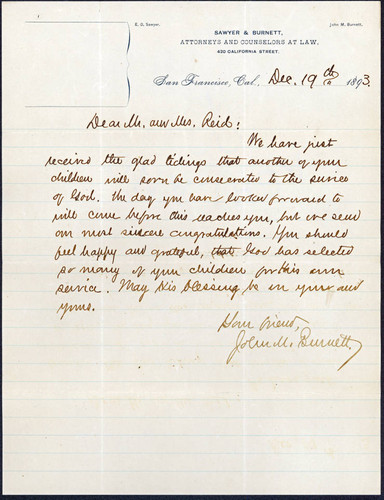 E. G. Sawyer.
John M. Burnett.
SAWYER & BURNETT,
ATTORNEYS AND COUNSELORS AT LAW,
420 CALIFORNIA STREET.
San Francisco, Cal., Dec. 19th 1893.
Dear Mr. and Mrs. Reid:
We have just
received the glad tidings that another of your
children will soon be consecrated to the service
of God. The day you have looked forward to
will come before this reaches you, but we send
our most sincere congratulations. You should
feel happy and grateful, that God has selected
so many of your children for his own
service. May His blessing be on you and
yours.
Your friend,
John M. Burnett.